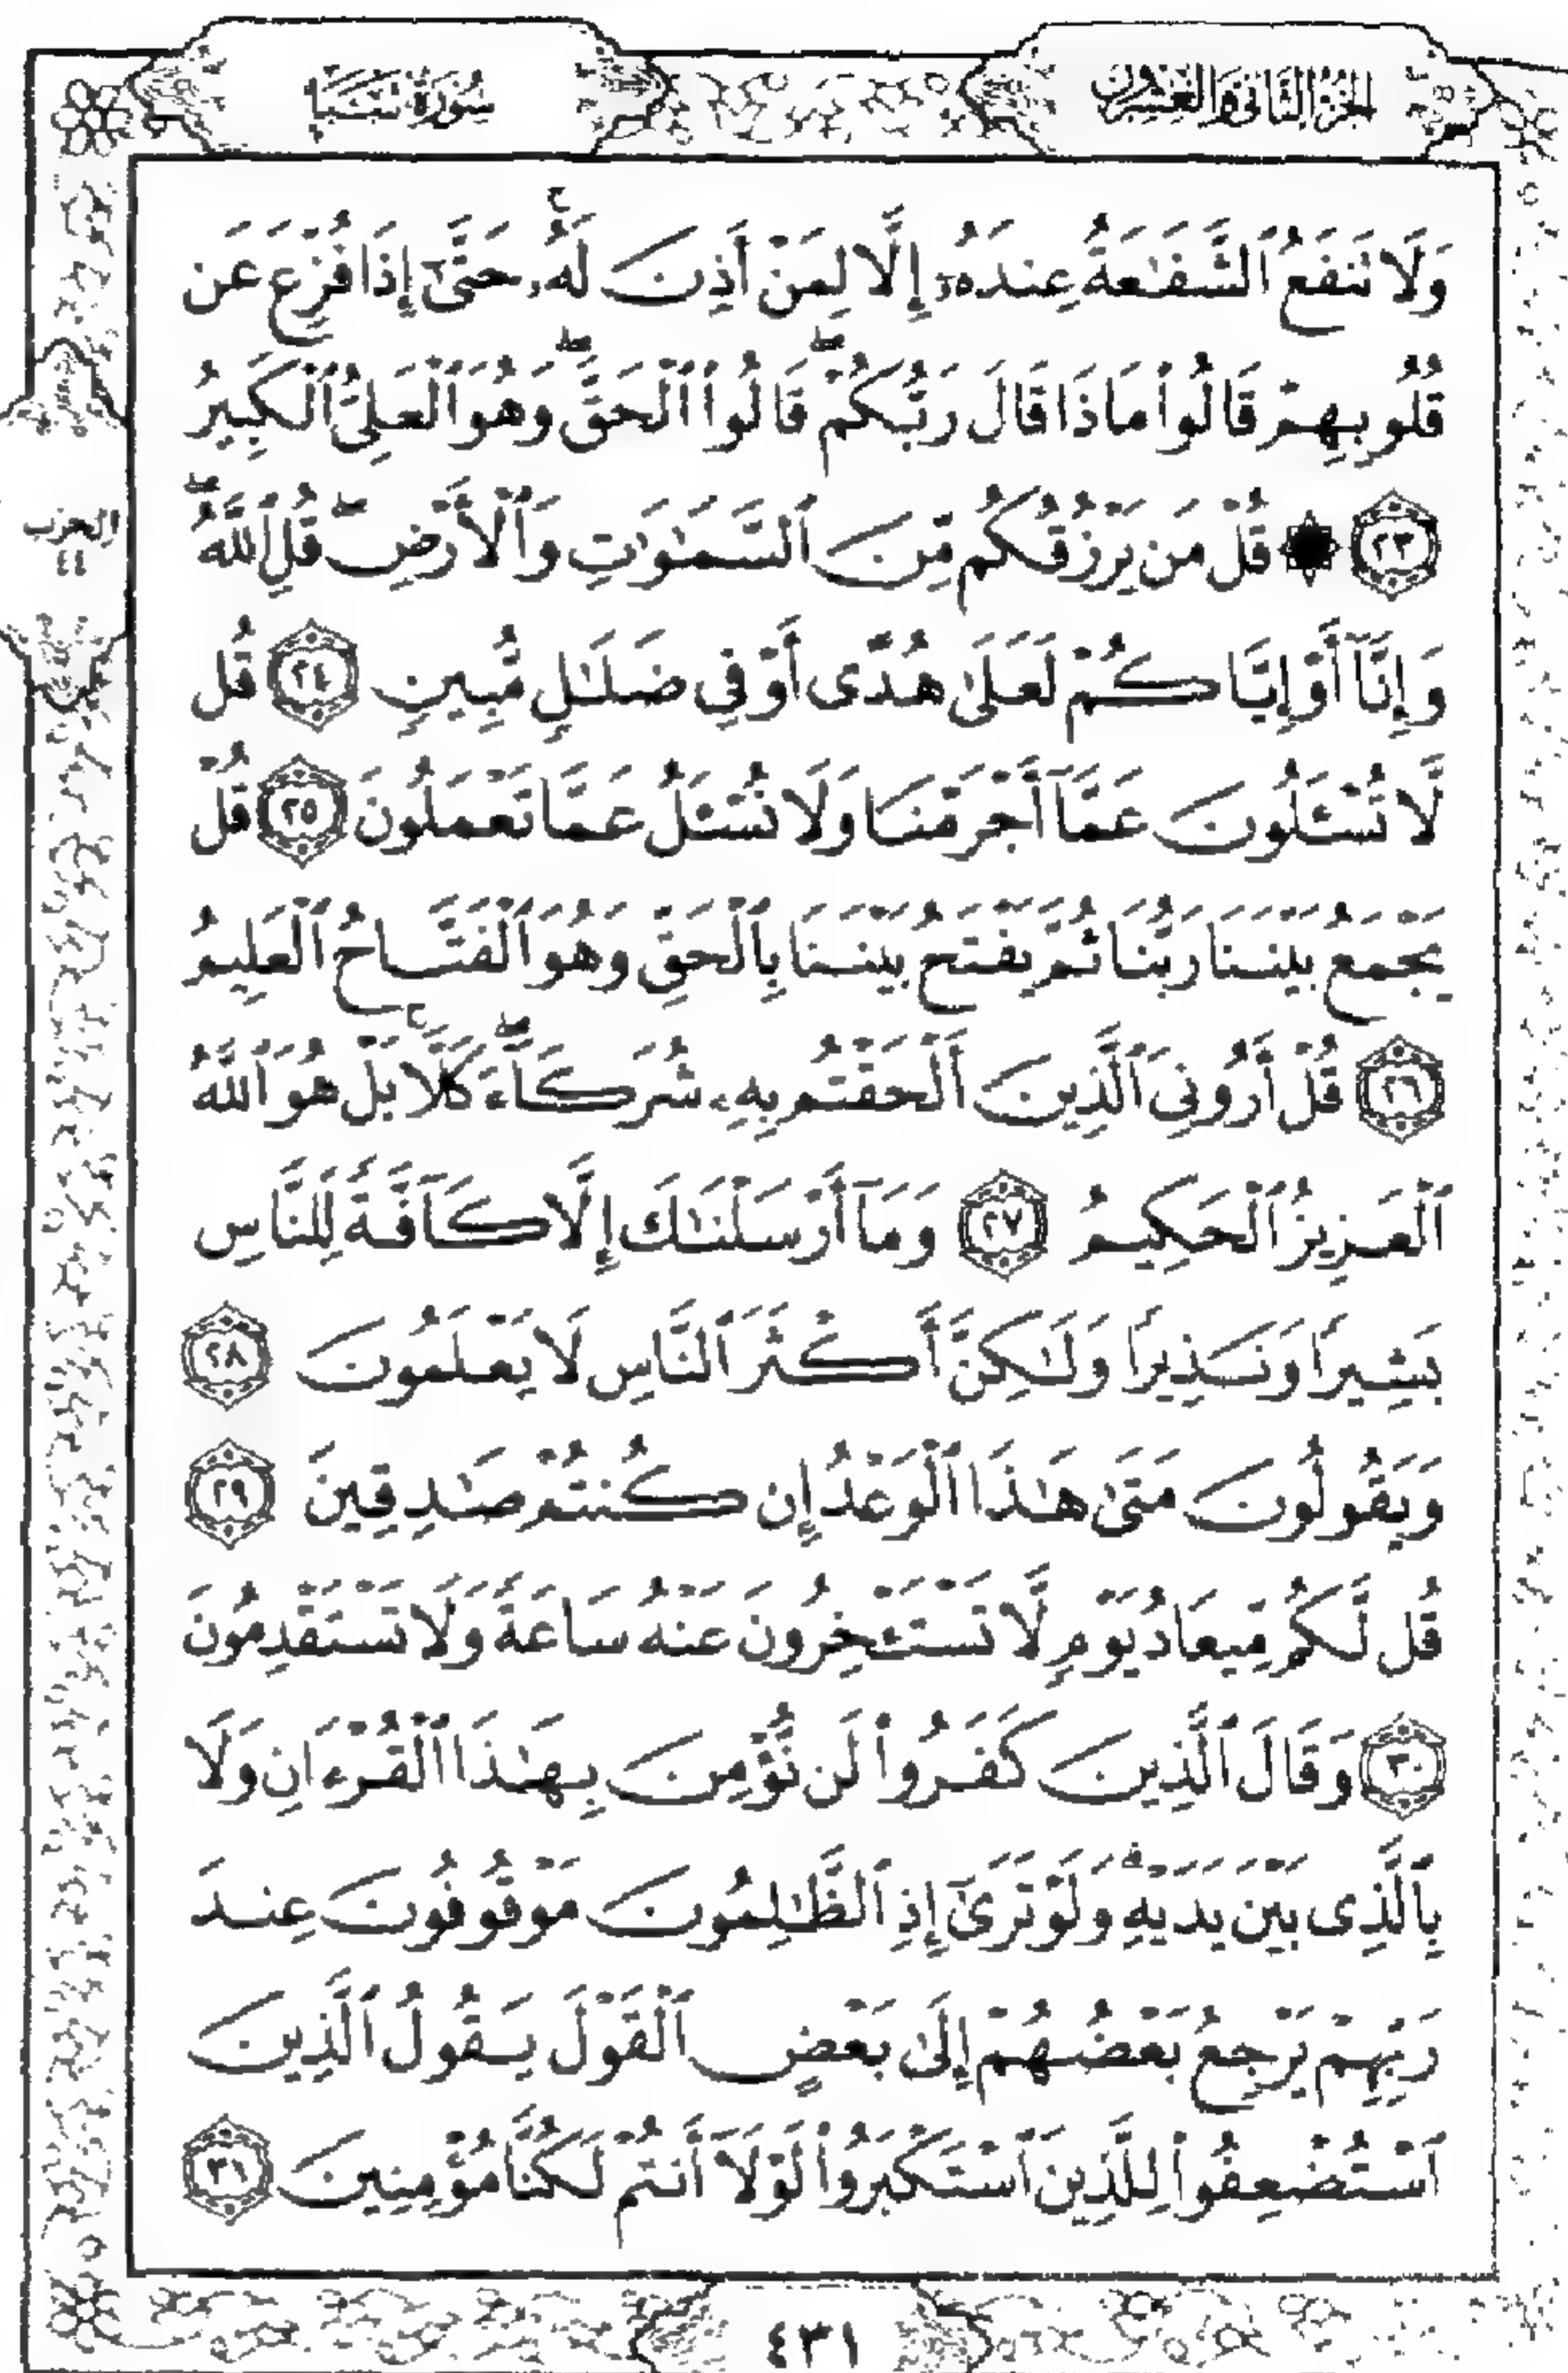 الجزء الثاني والعشرون
سورة سبإ
وَلَا تَنفَعُ ٱلشَّفَٰعَةُ عِندَهُۥٓ إِلَّا لِمَنْ أَذِنَ لَهُۥ ۚ حَتَّىٰٓ إِذَا فُزِّعَ عَن
قُلُوبِهِمْ قَالُوا۟ مَاذَا قَالَ رَبُّكُمْ ۖ قَالُوا۟ ٱلْحَقَّ ۖ وَهُوَ ٱلْعَلِىُّ ٱلْكَبِيرُ
٢٣ ۞ قُلْ مَن يَرْزُقُكُم مِّنَ ٱلسَّمَٰوَٰتِ وَٱلْأَرْضِ ۖ قُلِ ٱللَّهُ ۖ
وَإِنَّآ أَوْ إِيَّاكُمْ لَعَلَىٰ هُدًى أَوْ فِى ضَلَٰلٍ مُّبِينٍ ٢٤ قُل
لَّا تُسْـَٔلُونَ عَمَّآ أَجْرَمْنَا وَلَا نُسْـَٔلُ عَمَّا تَعْمَلُونَ ٢٥ قُلْ
يَجْمَعُ بَيْنَنَا رَبُّنَا ثُمَّ يَفْتَحُ بَيْنَنَا بِٱلْحَقِّ وَهُوَ ٱلْفَتَّاحُ ٱلْعَلِيمُ
٢٦ قُلْ أَرُونِىَ ٱلَّذِينَ أَلْحَقْتُم بِهِۦ شُرَكَآءَ ۖ كَلَّا ۚ بَلْ هُوَ ٱللَّهُ
ٱلْعَزِيزُ ٱلْحَكِيمُ ٢٧ وَمَآ أَرْسَلْنَٰكَ إِلَّا كَآفَّةً لِّلنَّاسِ
بَشِيرًا وَنَذِيرًا وَلَٰكِنَّ أَكْثَرَ ٱلنَّاسِ لَا يَعْلَمُونَ ٢٨
وَيَقُولُونَ مَتَىٰ هَٰذَا ٱلْوَعْدُ إِن كُنتُمْ صَٰدِقِينَ ٢٩
قُل لَّكُم مِّيعَادُ يَوْمٍ لَّا تَسْتَـْٔخِرُونَ عَنْهُ سَاعَةً وَلَا تَسْتَقْدِمُونَ
٣٠ وَقَالَ ٱلَّذِينَ كَفَرُوا۟ لَن نُّؤْمِنَ بِهَٰذَا ٱلْقُرْءَانِ وَلَا
بِٱلَّذِى بَيْنَ يَدَيْهِ ۗ وَلَوْ تَرَىٰٓ إِذِ ٱلظَّٰلِمُونَ مَوْقُوفُونَ عِندَ
رَبِّهِمْ يَرْجِعُ بَعْضُهُمْ إِلَىٰ بَعْضٍ ٱلْقَوْلَ يَقُولُ ٱلَّذِينَ
ٱسْتُضْعِفُوا۟ لِلَّذِينَ ٱسْتَكْبَرُوا۟ لَوْلَآ أَنتُمْ لَكُنَّا مُؤْمِنِينَ ٣١
الحزب
٤٣١